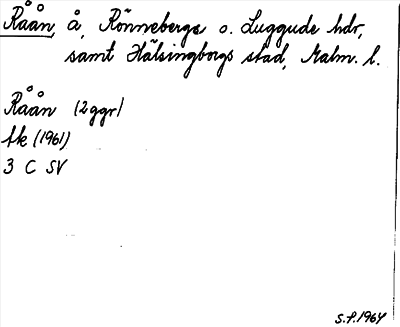 Råån, å, Rönnebergs o. Luggude hdr,
samt Hälsingborgs stad, Malm. l.
Råån (2 ggr)
fk (1961)
3 C SV
S.F. 1964